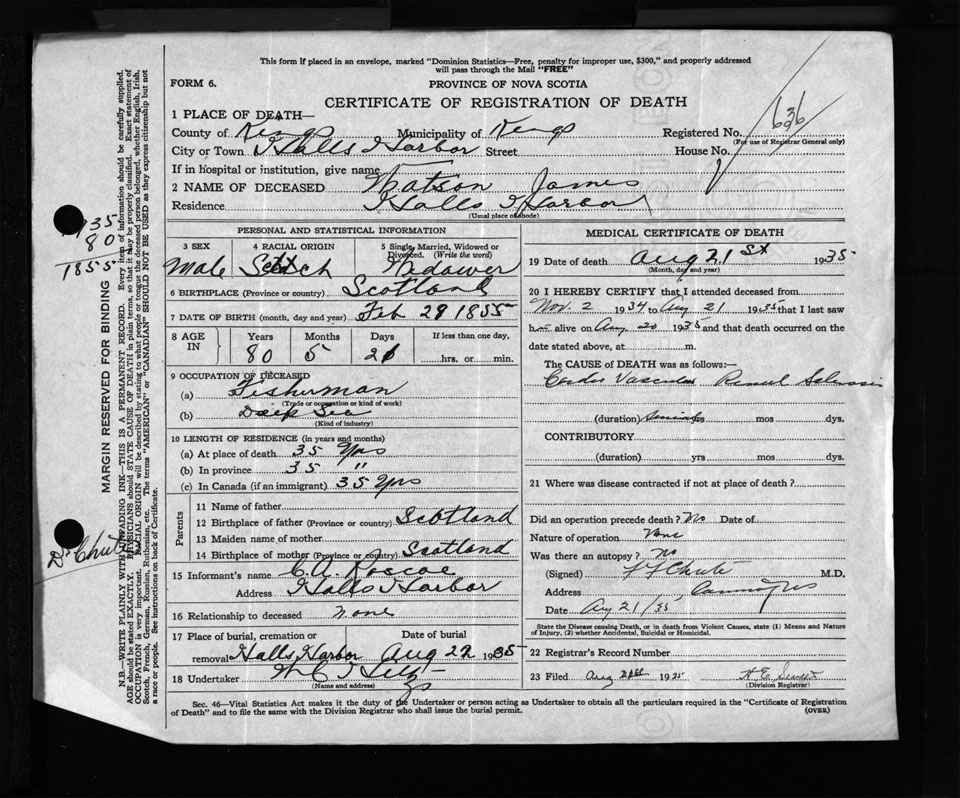 This form if placed in an envelope, marked "Dominion Statistics—Free, penalty for improper use, $300," and properly addressed
will pass through the Mail "FREE"
FORM 6.
PROVINCE OF NOVA SCOTIA
CERTIFICATE OF REGISTRATION OF DEATH
636
1 PLACE OF DEATH—
County of Kings Municipality of Kings Registered No.
(For use of Registrar General only)
City or Town Halls Harbor Street House No.
If in hospital or institution, give name
2 NAME OF DECEASED Watson James
Residence Halls Harbor
(Usual place of abode)
PERSONAL AND STATISTICAL INFORMATION
3 SEX 4 RACIAL ORIGIN 5 Single, Married, Widowed or
Divorced. (Write the word)
Male Scotch Widower
6 BIRTHPLACE (Province or country) Scotland
7 DATE OF BIRTH (month, day and year) Feb 29 1855
8 AGE IN Years Months Days If less than one day,
80 5 21 hrs. or min.
9 OCCUPATION OF DECEASED
(a) Fisherman
(Trade or occupation or kind of work)
(b) Deep Sea
(Kind of industry)
10 LENGTH OF RESIDENCE (in years and months)
(a) At place of death 35 Yrs
(b) In province 35 "
(c) In Canada (if an immigrant) 35 Yrs
Parents
11 Name of father
12 Birthplace of father (Province or country) Scotland
13 Maiden name of mother
14 Birthplace of mother (Province or country) Scotland
15 Informant's name C.A. Roscoe
Address Halls Harbor
16 Relationship to deceased none
17 Place of burial, cremation or Date of burial
removal Halls Harbor Aug 22 1935
18 Undertaker
(Name and address)
MEDICAL CERTIFICATE OF DEATH
19 Date of death Aug 21st 1935
(Month, day and year)
20 I HEREBY CERTIFY that I attended deceased from
Nov. 2 1934 to Aug 21 1935 that I last saw
h alive on Aug 20 1935 and that death occurred on the
date stated above, at m.
The CAUSE OF DEATH was as follows:—
Cardio Vascular Renal Sclerosis
(duration) mos dys.
CONTRIBUTORY
(duration) yrs mos dys.
21 Where was disease contracted if not at place of death?
Did an operation precede death? No Date of
Nature of operation None
Was there an autopsy? No
(Signed) Chute M.D.
Address
Date Aug 21/35
State the Disease causing Death, or in death from Violent Causes, state (1) Means and Nature
of Injury, (2) whether Accidental, Suicidal or Homicidal.
22 Registrar's Record Number
23 Filed Aug 21st 1935
(Division Registrar)
Sec. 46—Vital Statistics Act makes it the duty of the Undertaker or person acting as Undertaker to obtain all the particulars required in the "Certificate of Registration
of Death" and to file the same with the Division Registrar who shall issue the burial permit.
(OVER)
MARGIN RESERVED FOR BINDING
N.B.—WRITE PLAINLY WITH UNFADING INK—THIS IS A PERMANENT RECORD. Every item of information should be carefully supplied.
AGE should be stated EXACTLY. PHYSICIANS should STATE CAUSE OF DEATH in plain terms, so that it may be properly classified. Exact statement of
OCCUPATION is very important. RACIAL ORIGIN will be described by stating to what people or tongue the deceased person belonged, whether English, Irish,
Scotch, French, German, Russian, Ruthenian, etc. The terms "AMERICAN" or "CANADIAN" SHOULD NOT BE USED as they express citizenship but not
a race or people. See instructions on back of Certificate.
1935
80
1855
Dr Chute